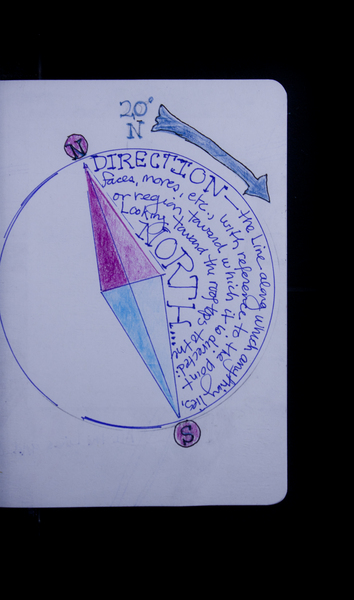 20°
N
N
DIRECTION — the Line along which anything lies,
faces, moves, etc., with reference to the point
or region, toward which it is directed:
Looking toward the rooftops to the
NORTH....
S